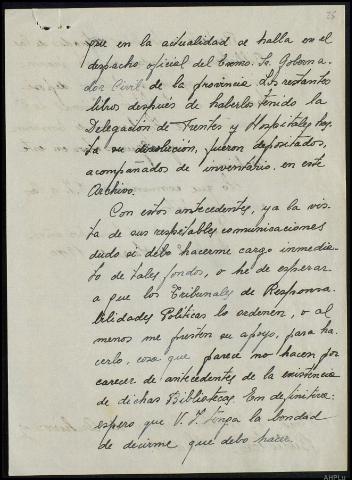 que en la actualidad se halla en el
despacho oficial del Excmo. Sr. Goberna-
dor Civil de la provincia. Los restantes
libros después de haberlos tenido la
Delegación de Frentes y Hospitales has-
ta su disolución, fueron depositados,
acompañados de inventario, en este
Archivo.
Con estos antecedentes, ya la vis-
ta de sus respetables comunicaciones
dudo si debo hacerme cargo inmedia-
to de tales fondos, o he de esperar
a que los Tribunales de Responsa-
bilidades Políticas lo ordenen, o al
menos me presten su apoyo, para ha-
cerlo, cosa que parece no hacen por
carecer de antecedentes de la existencia
de dichas Bibliotecas. En definitiva:
espero que V. I. tenga la bondad
de decirme que debo hacer.
AHPLu